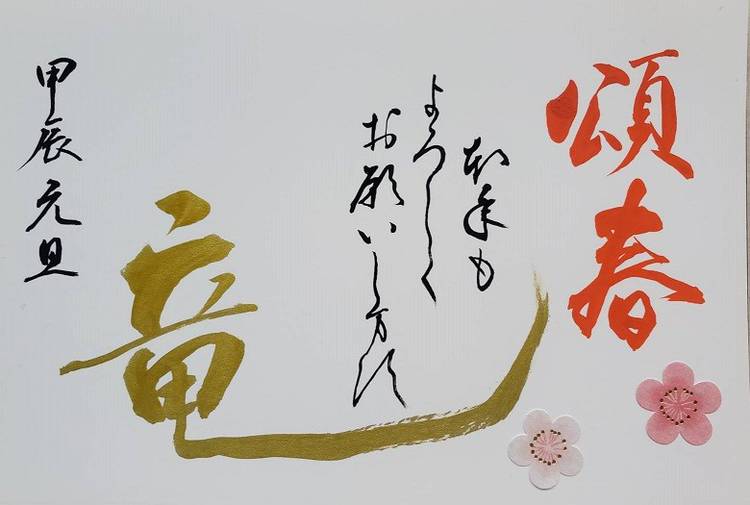 頌春
本年も
よろしく
お願いします
竜
甲辰元旦